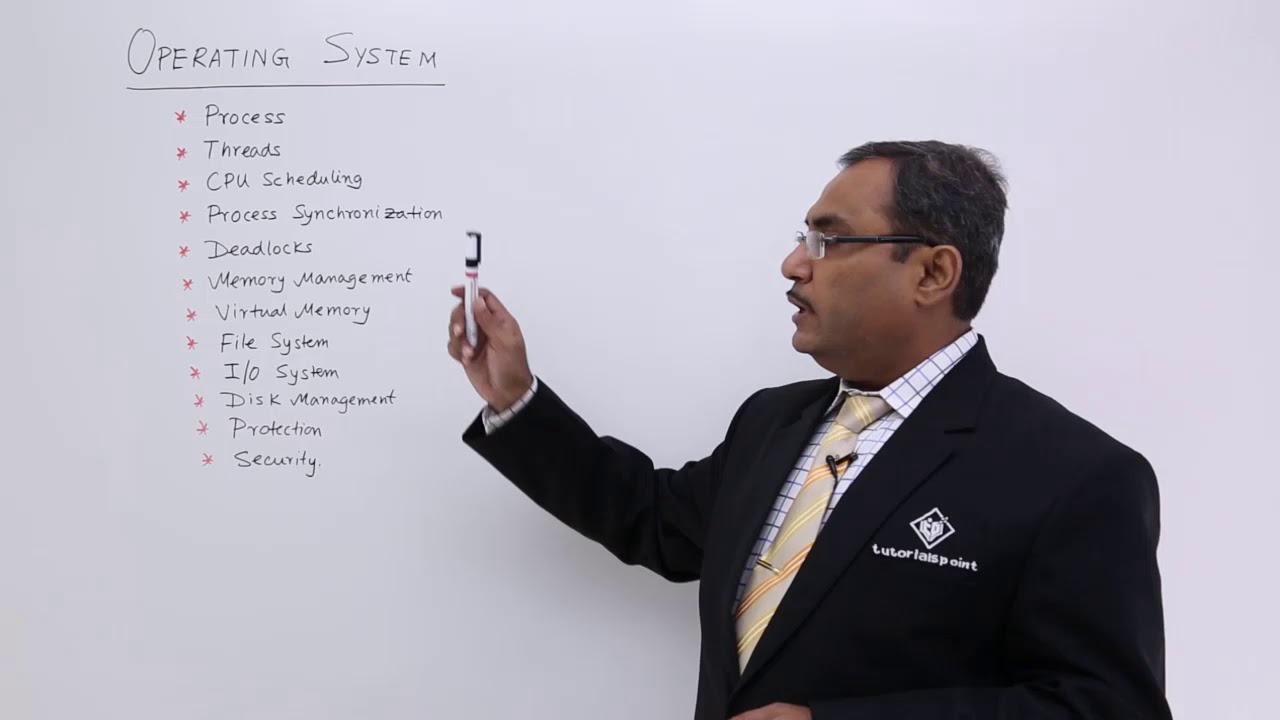 OPERATING SYSTEM
* Process
* Threads
* CPU Scheduling
* Process Synchronization
* Deadlocks
* Memory Management
* Virtual Memory
* File System
* I/O System
* Disk Management
* Protection
* Security.
tutorialspoint